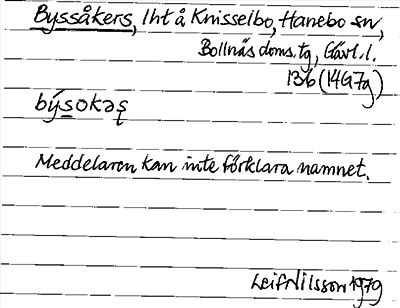 Byssåkers, lht å Knisselbo, Hanebo sn,
Bollnäs doms.tg, Gävl.l.
13b (14G7g)
býsokəʂ
Meddelaren kan inte förklara namnet.
Leif Nilsson 1979